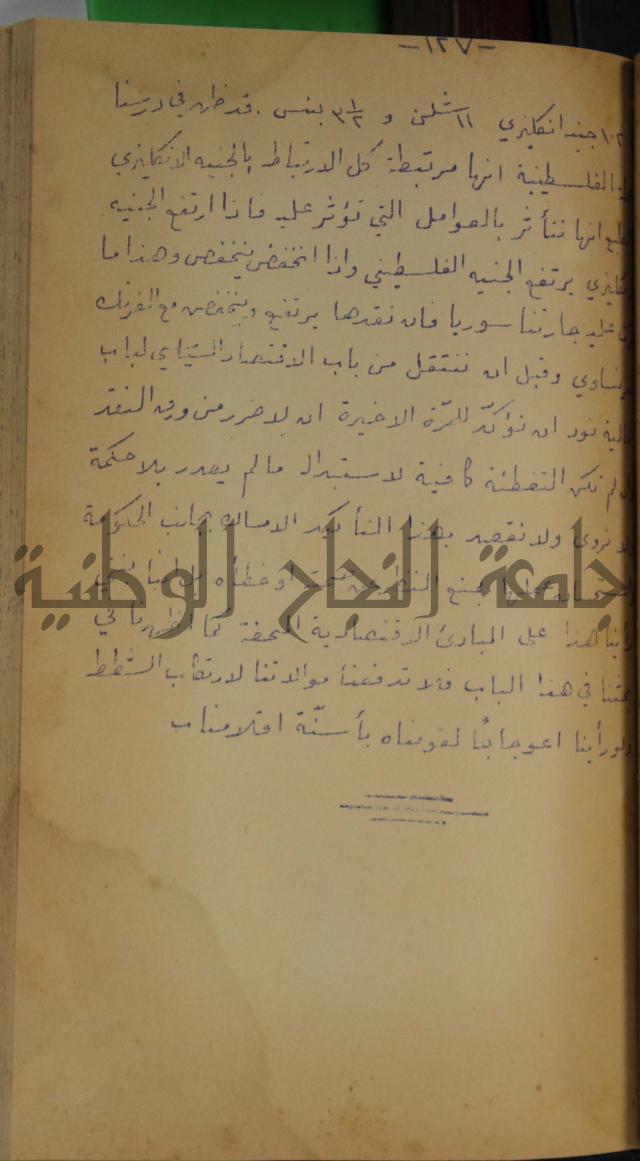 -١٢٧-
١٠٢ جنيه انكليزي ١١ شلن و ٣½ بنس . قد ظهر في درسنا
الفلسطينية انها مرتبطة كل الارتباط بالجنيه الانكليزي
انها تتأثر بالعوامل التي تؤثر عليه فاذا ارتفع الجنيه
يرتفع الجنيه الفلسطيني واذا انخفض ينخفض وهذا ما
عليه جارتنا سوريا فان نقدها يرتفع وينخفض مع الفرنك
وقبل ان ننتقل من باب الاقتصاد السياسي لباب
نود ان نؤكد للمرة الاخيرة ان لا ضرر من ورق النقد
لم تكن التغطئة كافية لاستبدال ما لم يصدر بلا حكمة
ولا نقصد بهذا التأكيد الامساك بجانب الحكومة
جامعة النجاح الوطنية
هذا على المبادئ الاقتصادية كما اظهرنا في
في هذا الباب فلا تدفعنا موالاتنا لارتكاب الشطط
ولو رأينا اعوجاجًا لقومناه بأسنّة اقلامنا